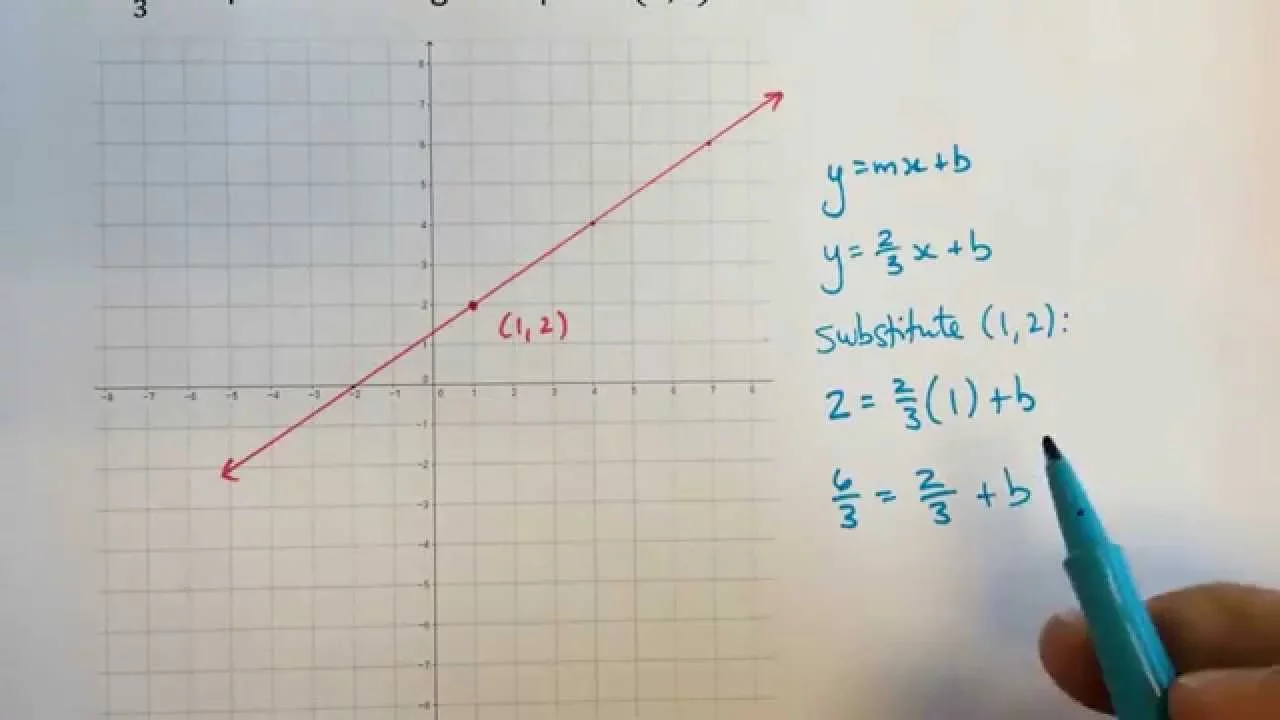 3
8
7
6
5
4
3
2
1
0
-8 -7 -6 -5 -4 -3 -2 -1 0 1 2 3 4 5 6 7 8
-1
-2
-3
-4
-5
-6
-7
-8
(1,2)
y=mx+b
y=2/3 x+b
substitute (1,2):
2=2/3(1)+b
6/3=2/3+b